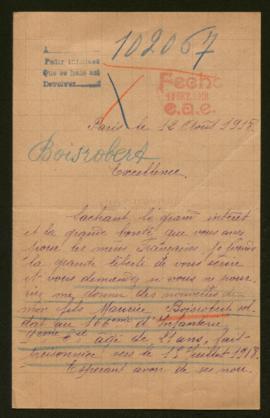 A
Pedir informes
Que se haia asi
Devolver
102067
Fecho
C.A.E.
Paris le 12 Août 1918
Boisrobert
Excellence,
Sachant le grand intérêt
et la grande bonté que vous avez
pour les mères Françaises je prends
la grande liberté de vous écrire
et vous demander si vous ne pourriez
me donner des nouvelles de
mon fils Maurice Boisrobert sol
dat au 166ème d'Infanterie
Cie agé de 21 ans, fait
prisonnier vers le 15 Juillet 1918.
Espérant avoir de